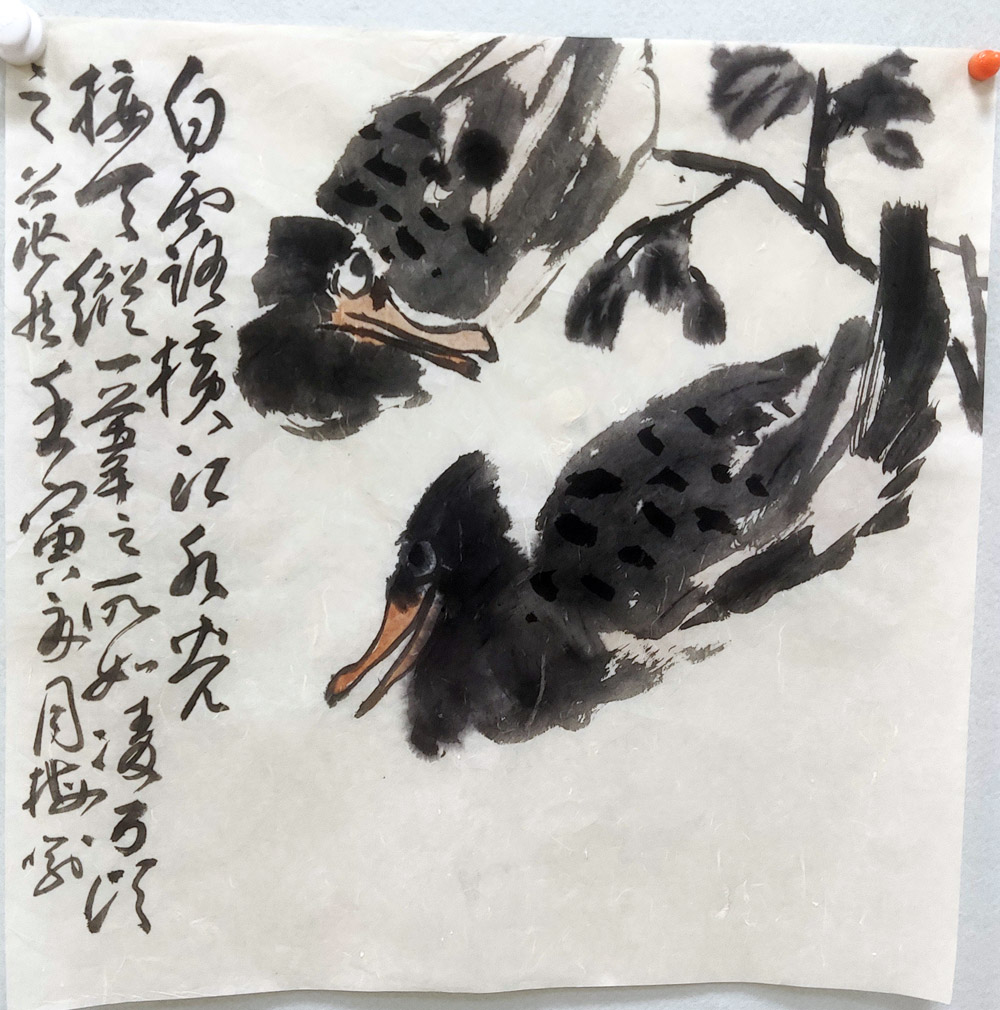 白露横江水光
接天纵一苇之所如凌万顷
之茫然壬寅秋月梅